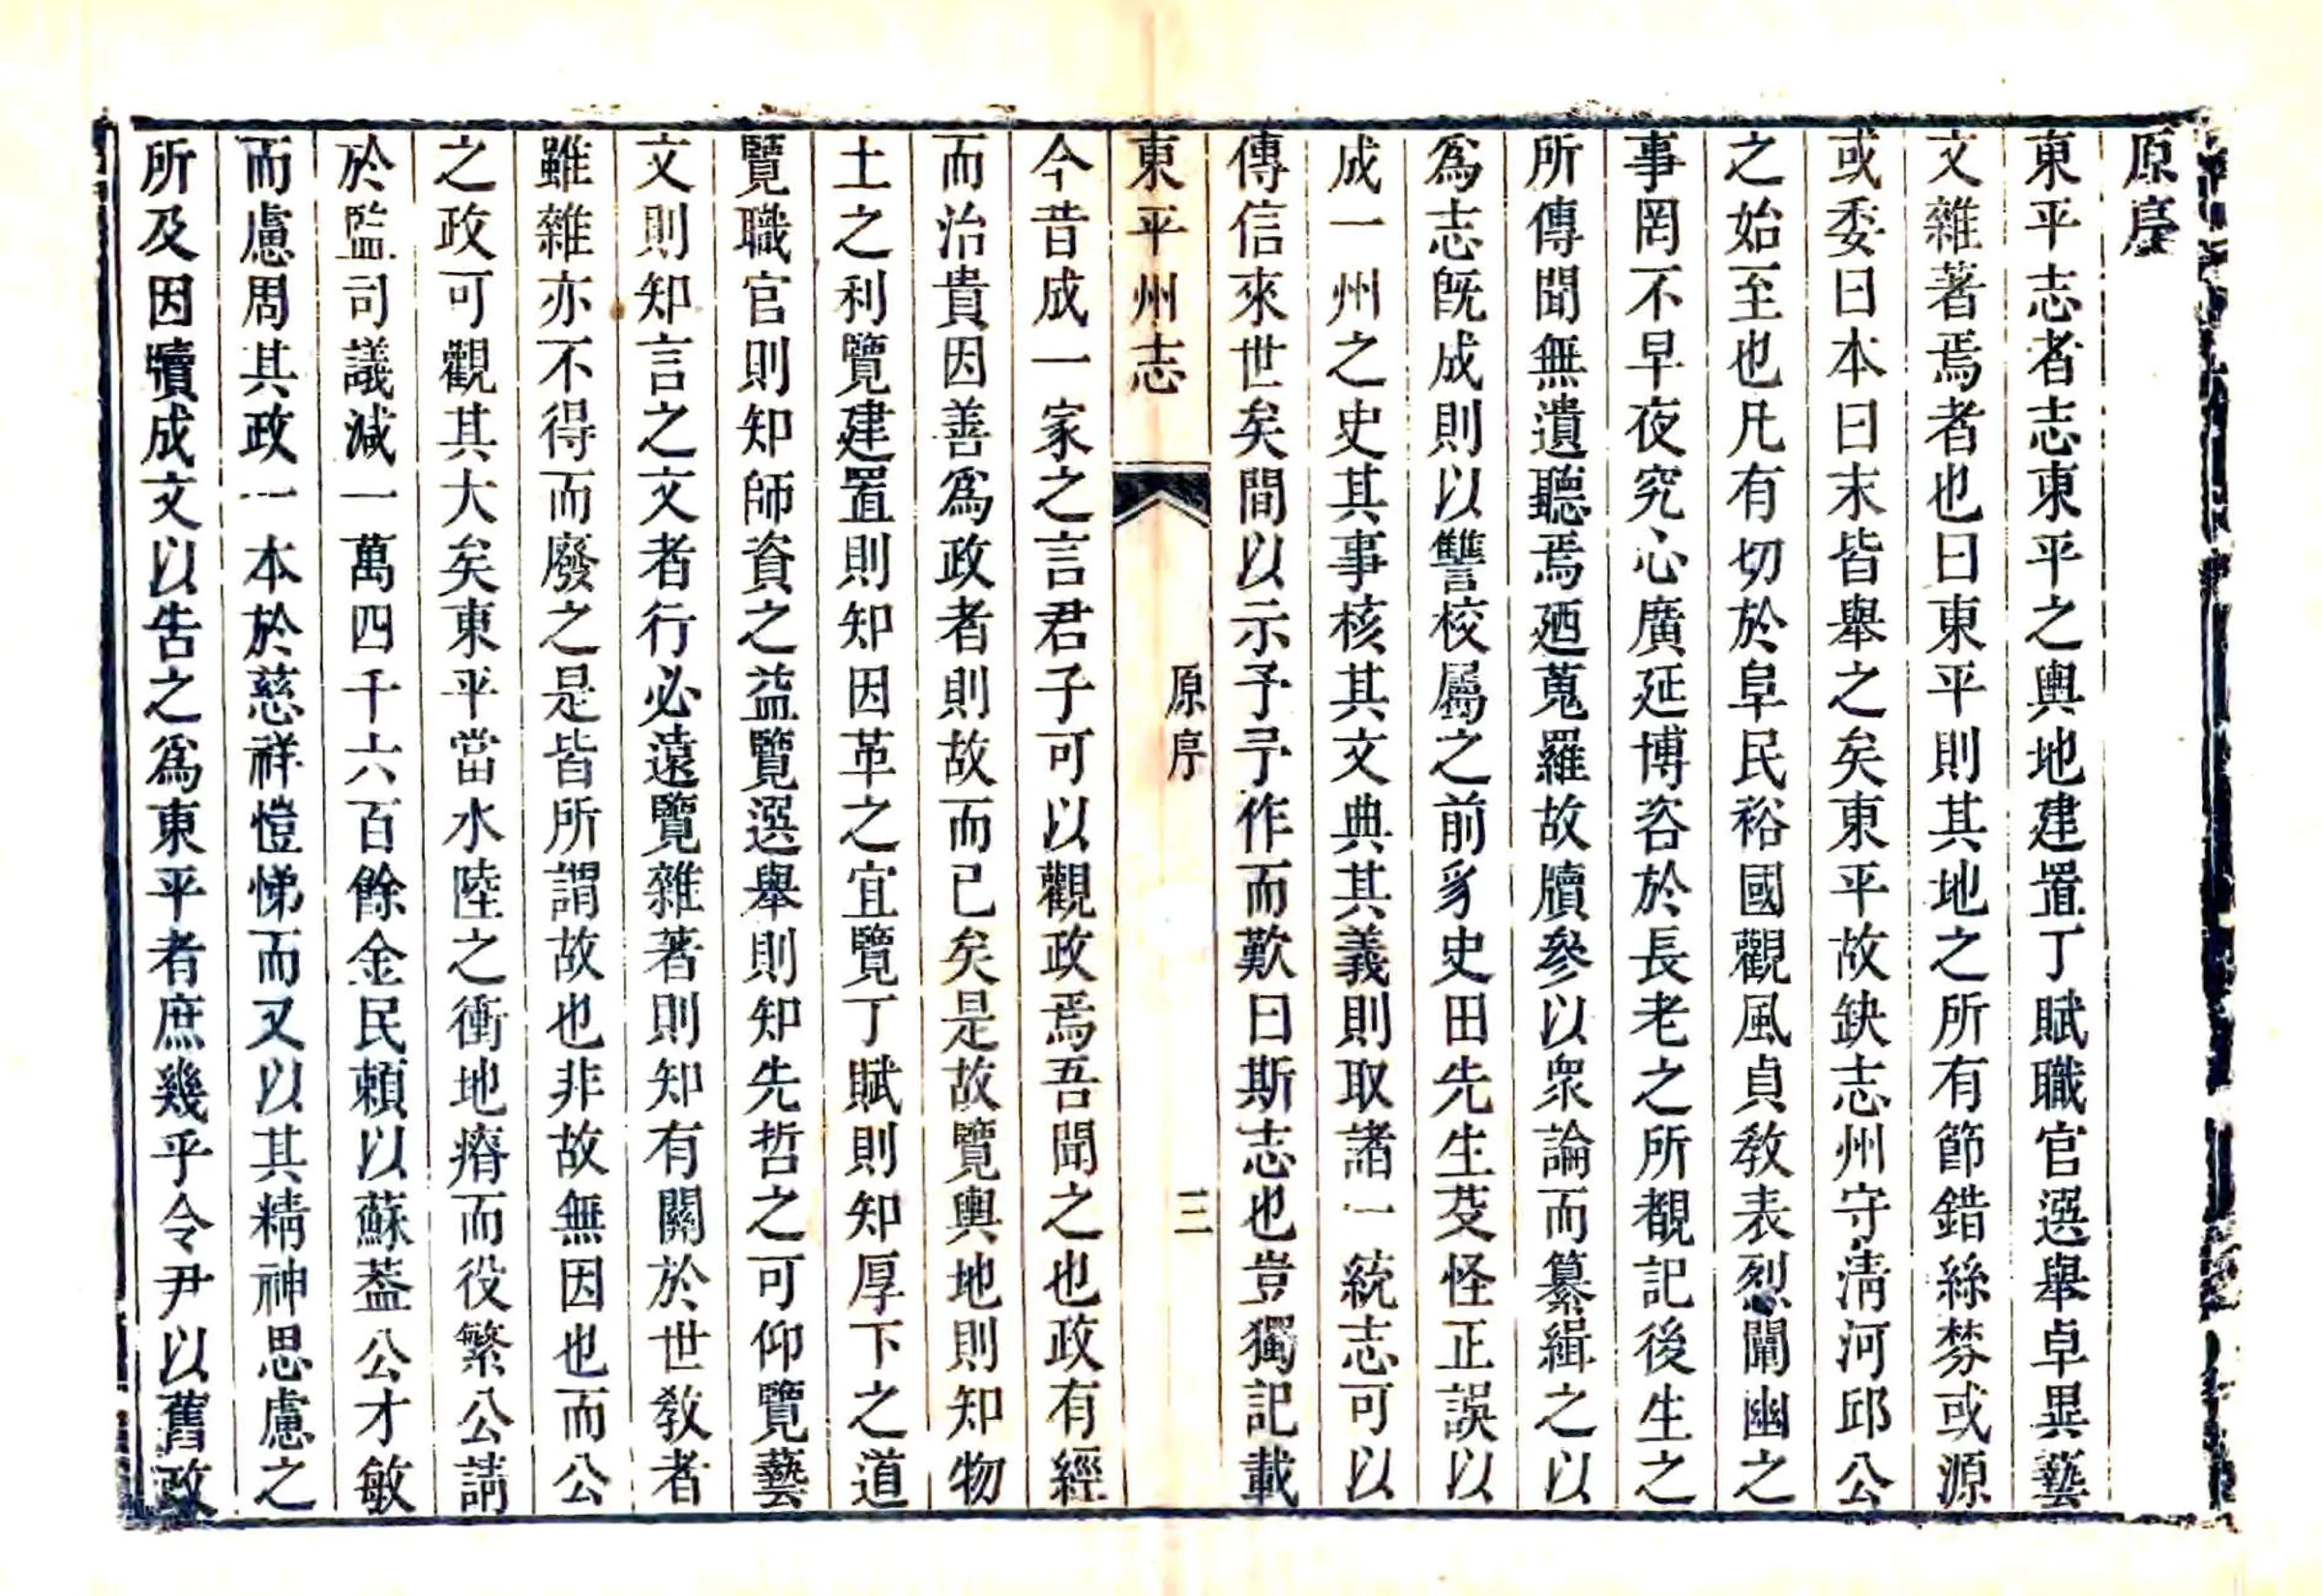 原序
東平志者志東平之輿地建置丁賦職官選舉卓異藝
文雜著焉者也曰東平則其地之所有節錯絲棼或源
或委曰本曰末皆舉之矣東平故缺志州守淸河邱公
之始至也凡有切於阜民裕國觀風貞敎表烈闡幽之
事罔不早夜究心廣延博咨於長老之所覩記後生之
所傳聞無遺聽焉廼蒐羅故牘參以衆論而纂緝之以
爲志旣成則以讐校屬之前豸史田先生芟怪正誤以
成一州之史其事核其文典其義則取諸一統志可以
傳信來世矣間以示予予作而歎曰斯志也豈獨記載
東平州志 原序 三
今昔成一家之言君子可以觀政焉吾聞之也政有經
而治貴因善爲政者則故而已矣是故覽輿地則知物
土之利覽建置則知因革之宜覽丁賦則知厚下之道
覽職官則知師資之益覽選舉則知先哲之可仰覽藝
文則知言之文者行必遠覽雜著則知有關於世敎者
雖雜亦不得而廢之是皆所謂故也非故無因也而公
之政可觀其大矣東平當水陸之衝地瘠而役繁公請
於監司議減一萬四千六百餘金民賴以蘇葢公才敏
而慮周其政一本於慈祥愷悌而又以其精神思慮之
所及因牘成文以告之爲東平者庶幾乎令尹以舊政